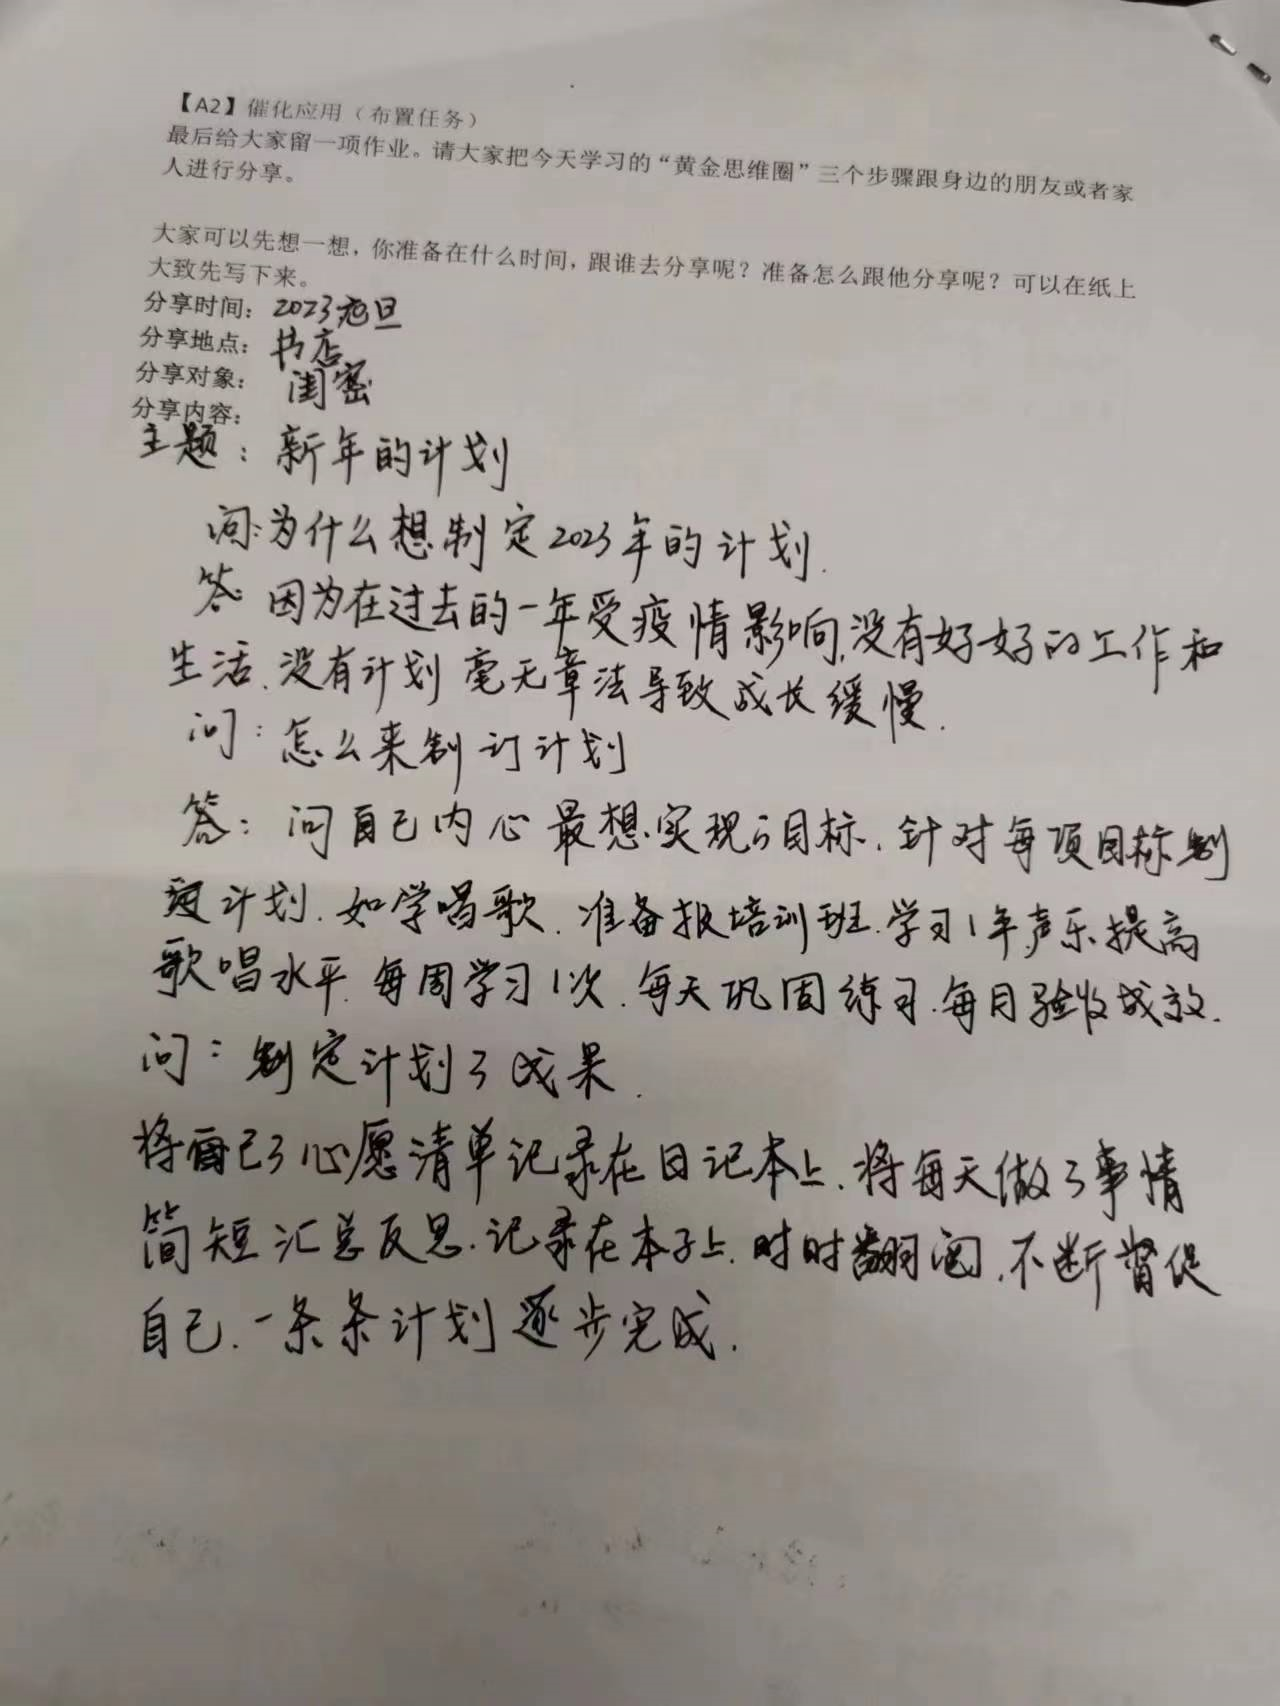 【A2】催化应用（布置任务）
最后给大家留一项作业。请大家把今天学习的“黄金思维圈”三个步骤跟身边的朋友或者家
人进行分享。
大家可以先想一想，你准备在什么时间，跟谁去分享呢？准备怎么跟他分享呢？可以在纸上
大致先写下来。
分享时间：2023元旦
分享地点：书店
分享对象：闺密
分享内容：
主题：新年的计划
问：为什么想制定2023年的计划.
答：因为在过去的一年受疫情影响,没有好好的工作和
生活、没有计划 毫无章法导致成长缓慢.
问：怎么来制订计划
答：问自己内心最想实现的目标.针对每项目标制
定计划.如学唱歌.准备报培训班.学习1年声乐提高
歌唱水平.每周学习1次.每天巩固练习.每月验收成效.
问：制定计划的成果.
将自己的心愿清单记录在日记本上.将每天做的事情
简短汇总反思.记录在本子上.时时翻阅.不断督促
自己.一条条计划逐步完成.